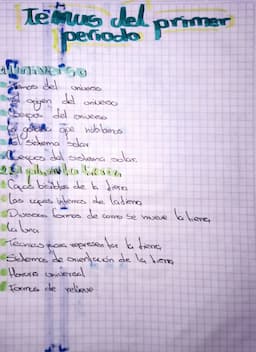 Temas del primer
periodo
Universo
del universo
El origen del universo
del universo
La galaxia que habitamos
El sistema solar
Cuerpos del sistema solar
Capas de la tierra
Las capas internas de la tierra
Diversas formas de como se mueve la tierra
La luna
Tecnicas para representar la tierra
Sistemas de orientación de la tierra
Horario universal
Formas de relieve